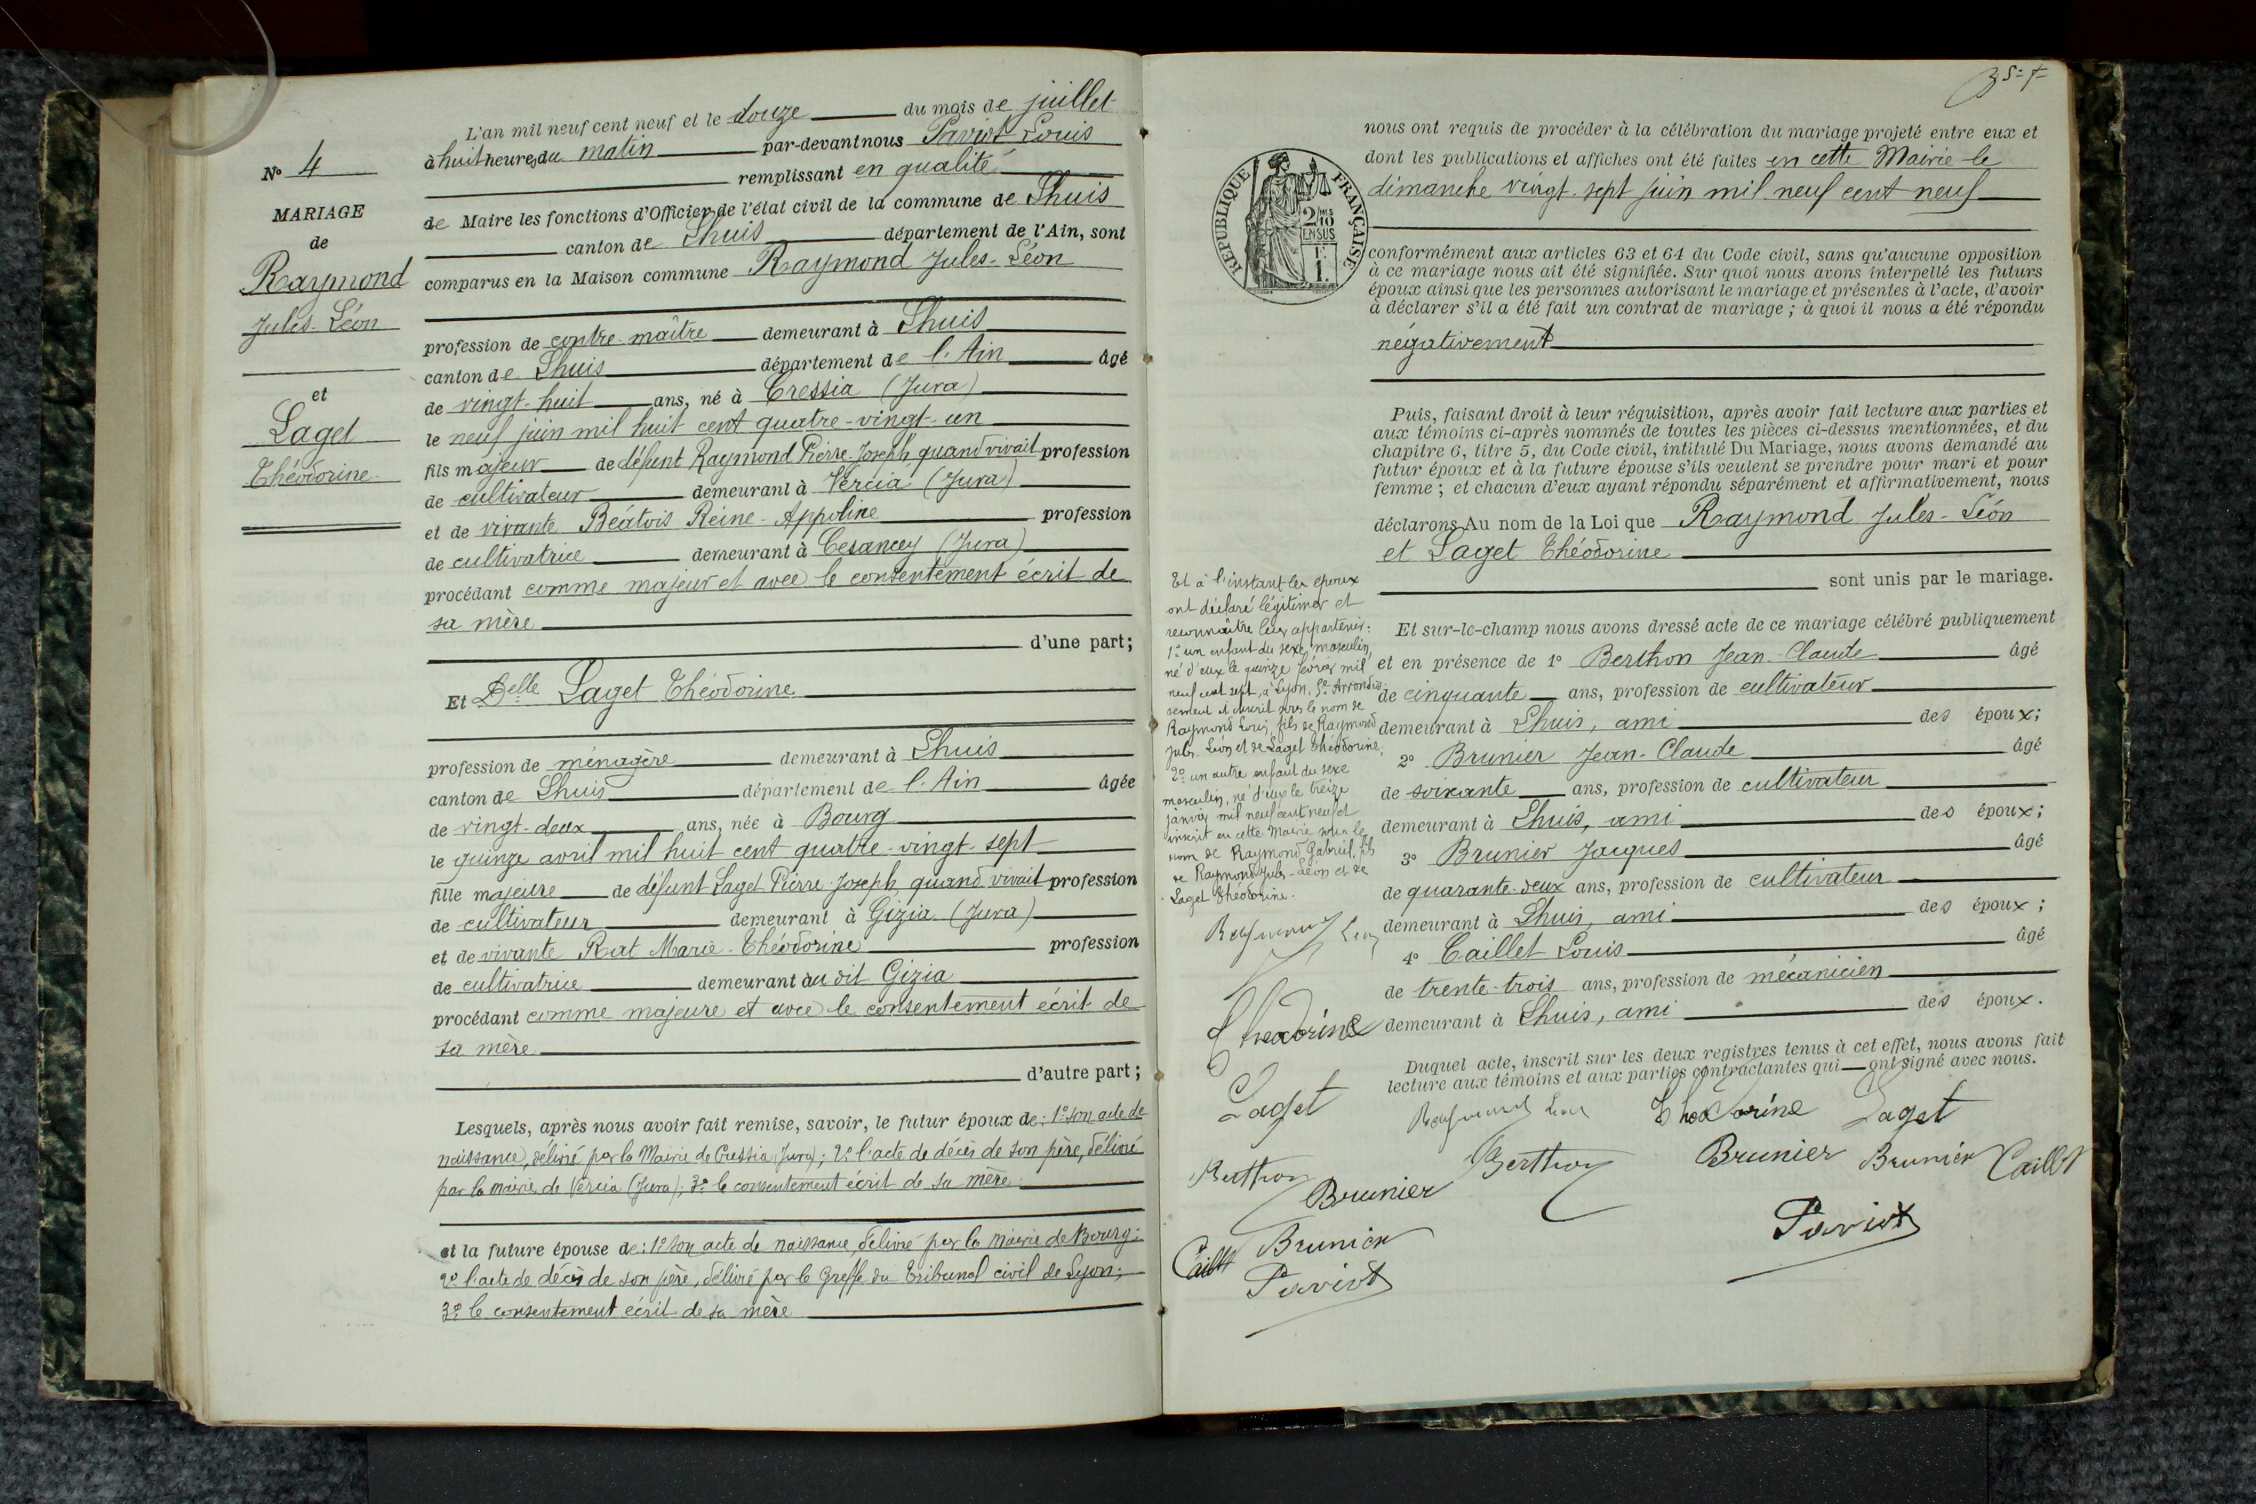 N° 4
MARIAGE
de
Raymond
Jules-Léon
et
Laget
Théodorine
L'an mil neuf cent neuf et le douze du mois de juillet
à huit heures du matin par-devant nous Paviot Louis
remplissant en qualité
de Maire les fonctions d'Officier de l'état civil de la commune de Lhuis
canton de Lhuis département de l'Ain, sont
comparus en la Maison commune Raymond Jules-Léon
profession de contre-maître demeurant à Lhuis
canton de Lhuis département de l'Ain âgé
de vingt-huit ans, né à Cressia (Jura)
le neuf juin mil huit cent quatre-vingt-un
fils majeur de défunt Raymond Pierre-Joseph quand vivait profession
de cultivateur demeurant à Vercia (Jura)
et de vivante Béatois Reine-Appoline profession
de cultivatrice demeurant à Cesancey (Jura)
procédant comme majeur et avec le consentement écrit de
sa mère
d'une part;
Et Delle Laget Théodorine
profession de ménagère demeurant à Lhuis
canton de Lhuis département de l'Ain âgée
de vingt-deux ans, née à Bourg
le quinze avril mil huit cent quatre-vingt-sept
fille majeure de défunt Laget Pierre-Joseph, quand vivait profession
de cultivateur demeurant à Gizia (Jura)
et de vivante Rat Marie-Théodorine profession
de cultivatrice demeurant au dit Gizia
procédant comme majeure et avec le consentement écrit de
sa mère
d'autre part;
Lesquels, après nous avoir fait remise, savoir, le futur époux de: 1° son acte de
naissance, délivré par la Mairie de Cressia (Jura); 2° l'acte de décès de son père, délivré
par la mairie de Vercia (Jura); 3° le consentement écrit de sa mère
et la future épouse de: 1° son acte de naissance, délivré par la mairie de Bourg;
2° l'acte de décès de son père, délivré par le Greffe du Tribunal civil de Lyon;
3° le consentement écrit de sa mère
RÉPUBLIQUE FRANÇAISE
2/10 MES
EN SUS
1F
nous ont requis de procéder à la célébration du mariage projeté entre eux et
dont les publications et affiches ont été faites en cette Mairie le
dimanche vingt-sept juin mil neuf cent neuf
conformément aux articles 63 et 64 du Code civil, sans qu'aucune opposition
à ce mariage nous ait été signifiée. Sur quoi nous avons interpellé les futurs
époux ainsi que les personnes autorisant le mariage et présentes à l'acte, d'avoir
à déclarer s'il a été fait un contrat de mariage; à quoi il nous a été répondu
négativement
Puis, faisant droit à leur réquisition, après avoir fait lecture aux parties et
aux témoins ci-après nommés de toutes les pièces ci-dessus mentionnées, et du
chapitre 6, titre 5, du Code civil, intitulé Du Mariage, nous avons demandé au
futur époux et à la future épouse s'ils veulent se prendre pour mari et pour
femme; et chacun d'eux ayant répondu séparément et affirmativement, nous
déclarons Au nom de la Loi que Raymond Jules-Léon
et Laget Théodorine
sont unis par le mariage.
Et sur-le-champ nous avons dressé acte de ce mariage célébré publiquement
et en présence de 1° Berthon Jean-Claude âgé
de cinquante ans, profession de cultivateur
demeurant à Lhuis, ami des époux;
2° Brunier Jean-Claude âgé
de soixante ans, profession de cultivateur
demeurant à Lhuis, ami des époux;
3° Brunier Jacques âgé
de quarante-deux ans, profession de cultivateur
demeurant à Lhuis, ami des époux;
4° Caillet Louis âgé
de trente-trois ans, profession de mécanicien
demeurant à Lhuis, ami des époux.
Duquel acte, inscrit sur les deux registres tenus à cet effet, nous avons fait
lecture aux témoins et aux parties contractantes qui ont signé avec nous.
Raymond Léon Théodorine Laget
Berthon Brunier Brunier Caillet
Paviot
Et à l'instant les époux
ont déclaré légitimer et
reconnaître leur appartenir:
1° un enfant du sexe masculin,
né d'eux le quinze février mil
neuf cent sept, à Lyon, 5e Arrondis-
sement et inscrit sous le nom de
Raymond Louis, fils de Raymond
Jules-Léon et de Laget Théodorine,
2° un autre enfant du sexe
masculin, né d'eux le treize
janvier mil neuf cent neuf et
inscrit en cette Mairie sous le
nom de Raymond Gabriel, fils
de Raymond Jules-Léon et de
Laget Théodorine.
Raymond Léon
Théodorine
Laget
Berthon
Brunier
Brunier
Caillet
Paviot